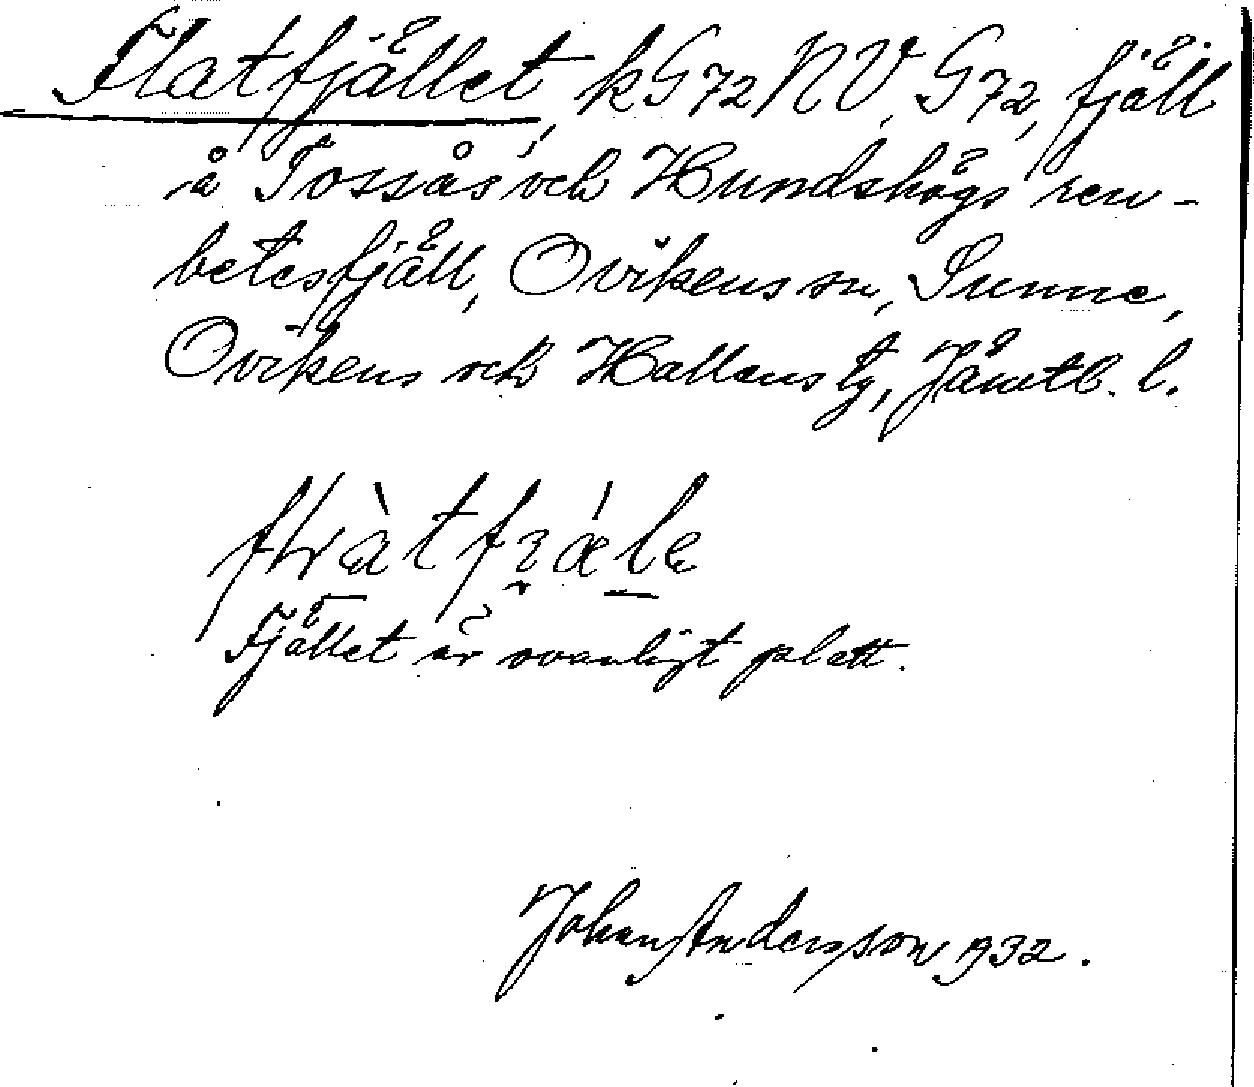 Flatfjället, k G 72 NV, G 72, fjäll
å Tossås och Hundshögs ren-
betesfjäll, Ovikens sn, Sunne,
Ovikens och Hallens tg, Jämtl. l.
Fjället är ovanligt platt.
Johan Andersson 1932.